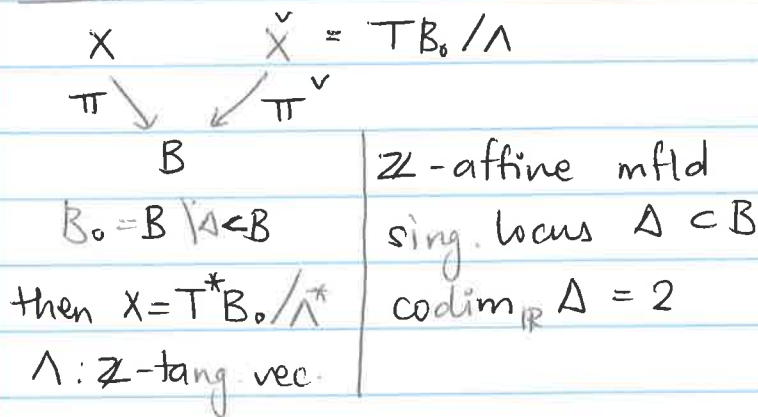 X X̌ = TB₀/Λ
π π̌
B
B₀ = B \ Δ ⊂ B
then X = T*B₀/Λ*
Λ : ℤ-tang. vec.
ℤ-affine mfld
sing. locus Δ ⊂ B
codim_ℝ Δ = 2